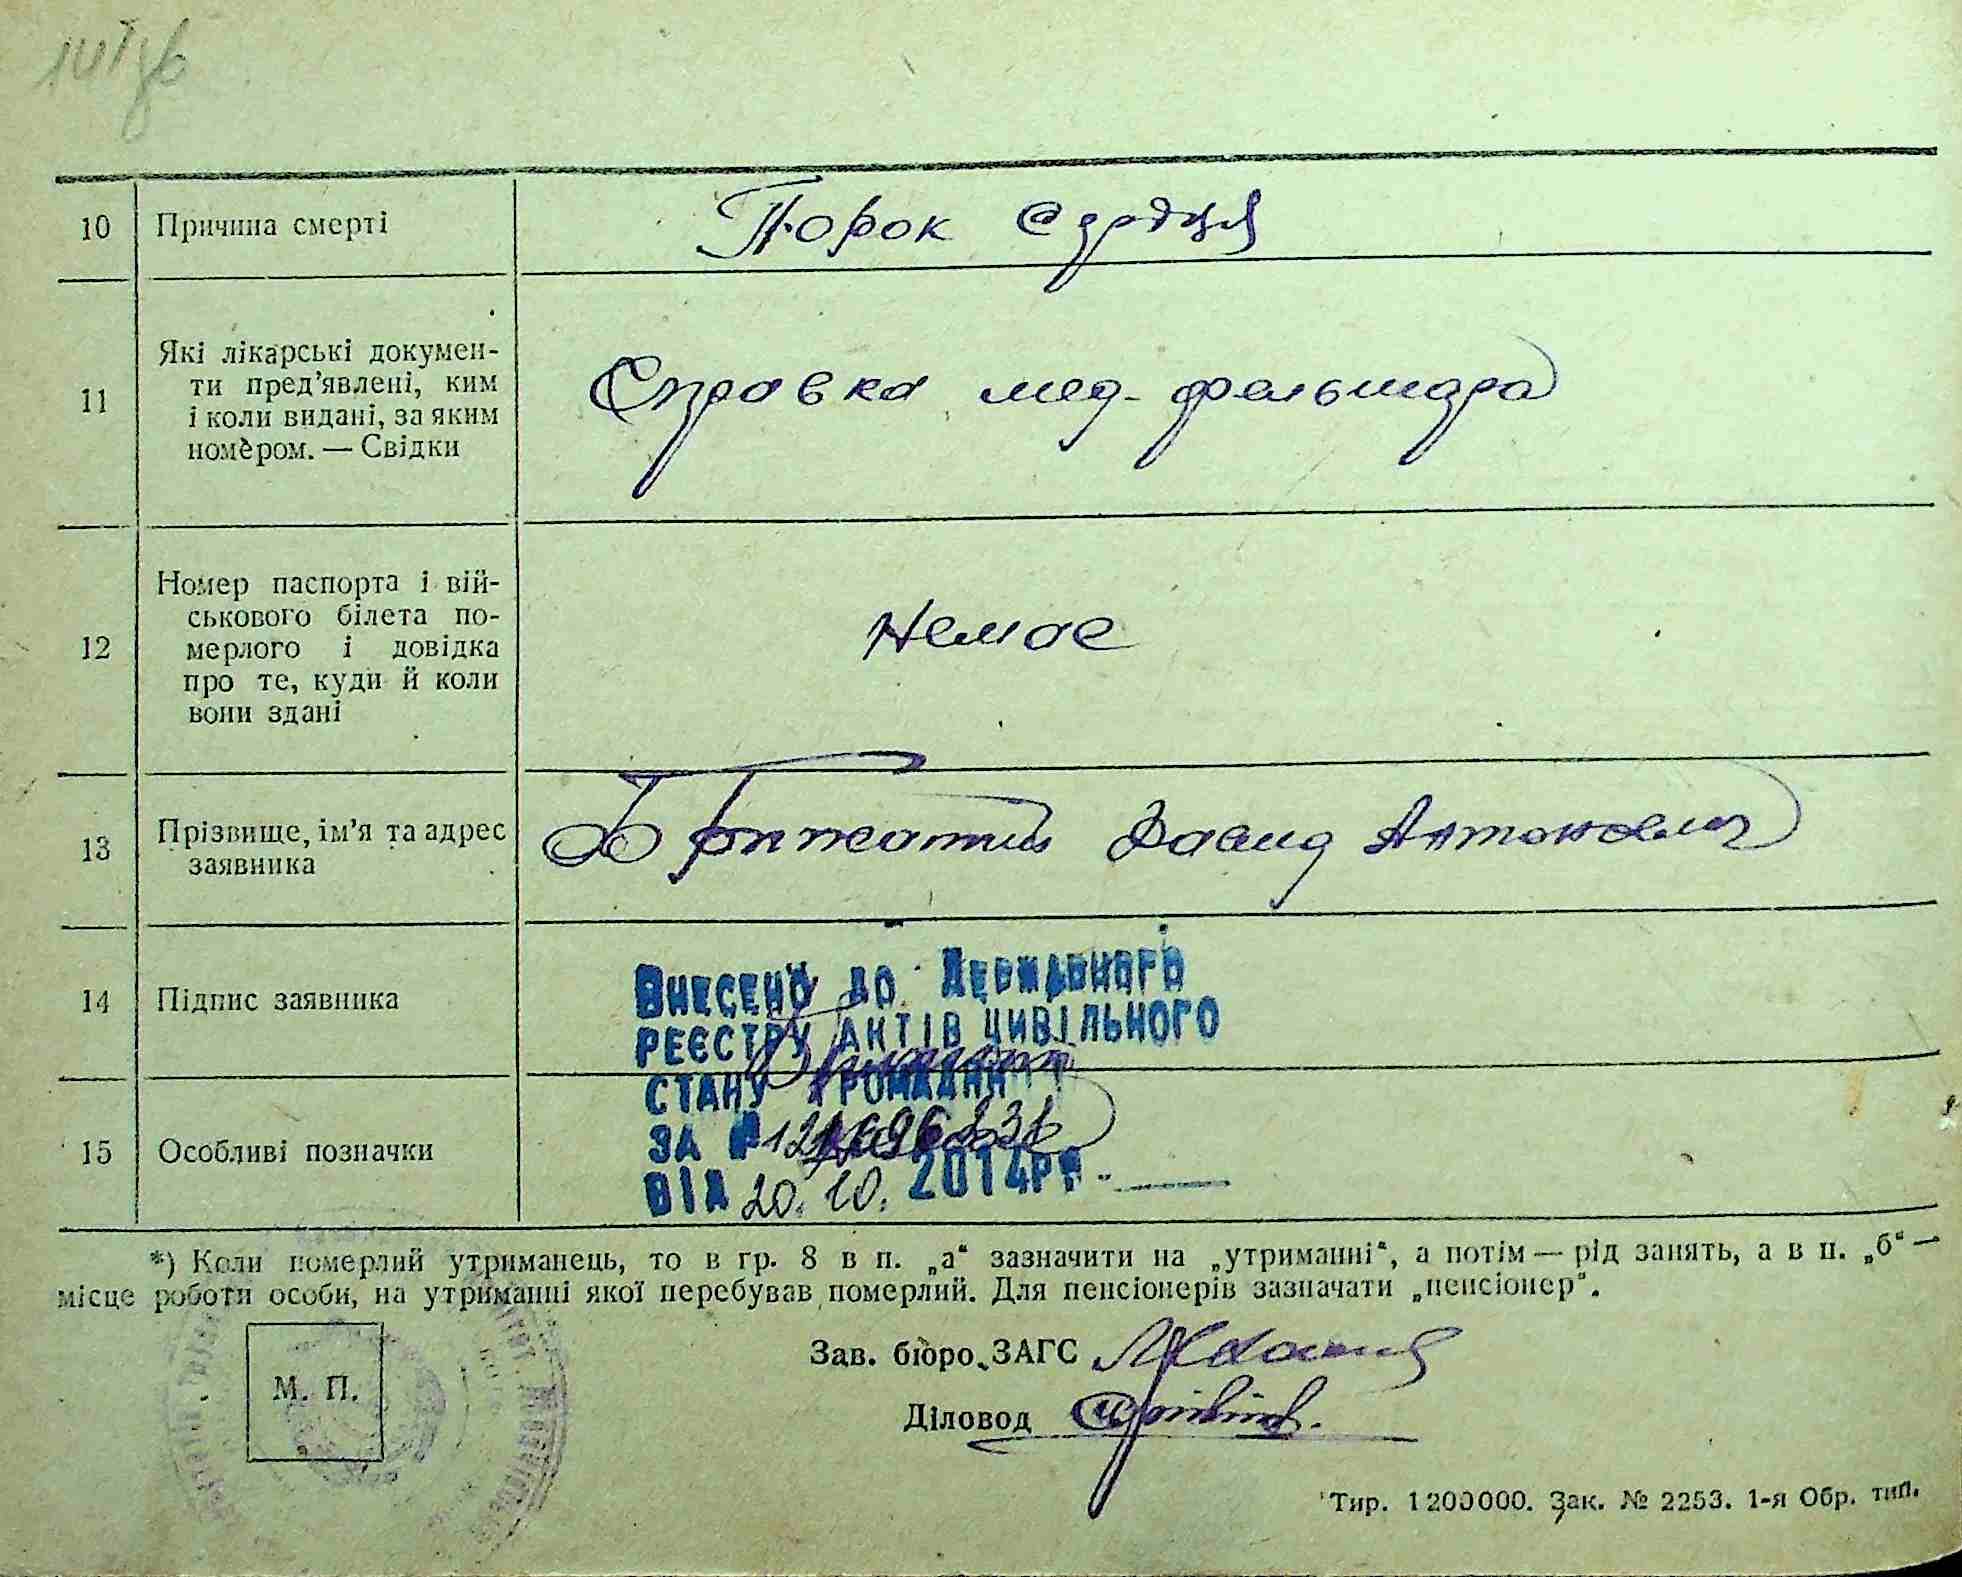 10 Причина смерті Порок Сэрдця
11 Які лікарські докумен-
ти пред’явлені, ким
і коли видані, за яким
номером. — Свідки
Справка мед. фельшэра
12 Номер паспорта і вій-
ськового білета по-
мерлого і довідка
про те, куди й коли
вони здані
Немає
13 Прізвище, ім’я та адрес
заявника
Давид Антонович
14 Підпис заявника
ВНЕСЕНО ДО ДЕРЖАВНОГО
РЕЄСТРУ АКТІВ ЦИВІЛЬНОГО
СТАНУ ГРОМАДЯН
15 Особливі позначки
ЗА №
ВІД 20.10. 2014РР.
*) Коли померлий утриманець, то в гр. 8 в п. „а“ зазначити на „утриманні“, а потім — рід занять, а в п. „б“ —
місце роботи особи, на утриманні якої перебував померлий. Для пенсіонерів зазначати „пенсіонер“.
М. П.
Зав. бюро ЗАГС
Діловод
Тир. 1200000. Зак. № 2253. 1-я Обр. тип.